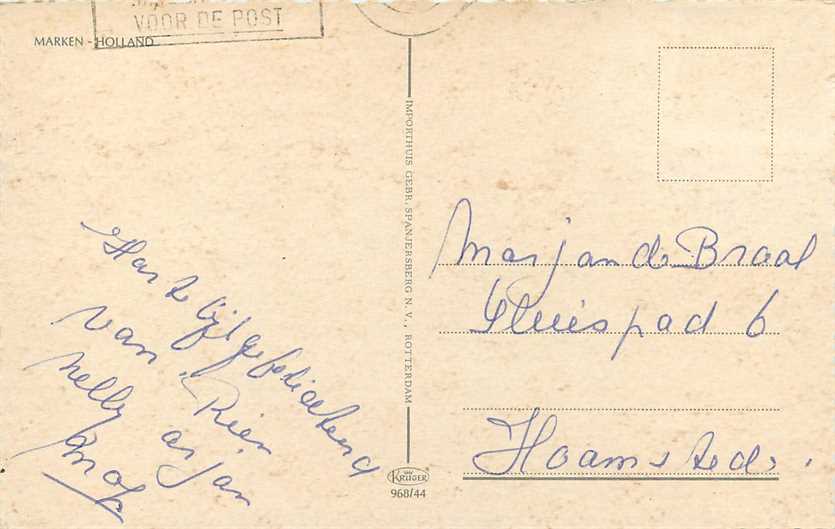 VOOR DE POST
MARKEN - HOLLAND
Hartelijk gefeliciteerd
van Rien
Nelly arjan
IMPORTHUIS GEBR. SPANJERSBERG N.V., ROTTERDAM
VAN
KRÜGER
968/44
Marjan de Braal
Sluispad 6
Haamstede.